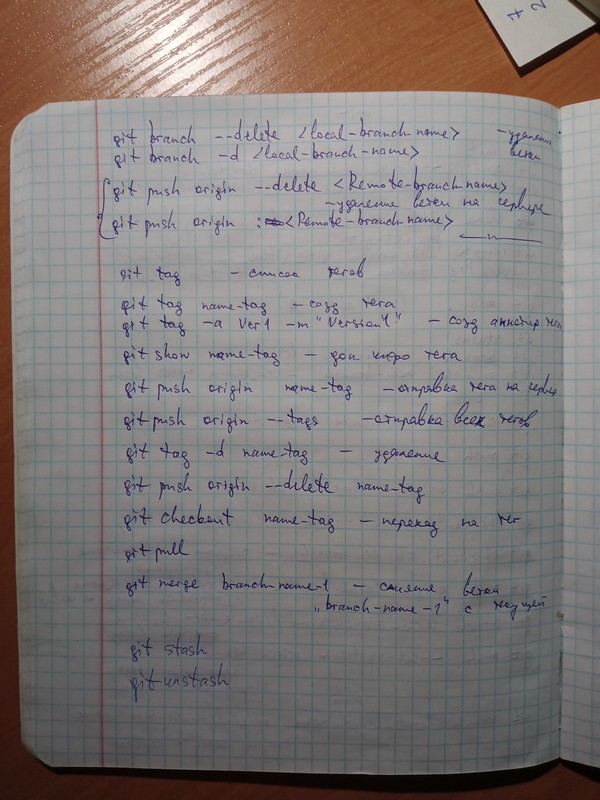 7
2
git branch --delete <local-branch-name> - удаление
git branch -d <local-branch-name> ветки
git push origin --delete <Remote-branch-name>
- удаление ветки на сервере
git push origin :<Remote-branch-name>
—"—
git tag - список тегов
git tag name-tag - созд тега
git tag -a Ver1 -m "Version1" - созд аннотир. тега
git show name-tag - доп инфо тега
git push origin name-tag - отправка тега на сервер
git push origin --tags - отправка всех тегов
git tag -d name-tag - удаление
git push origin --delete name-tag
git checkout name-tag - переход на тег
git pull
git merge branch-name-1 - слияние ветки
"branch-name-1" с текущей
git stash
git unstash